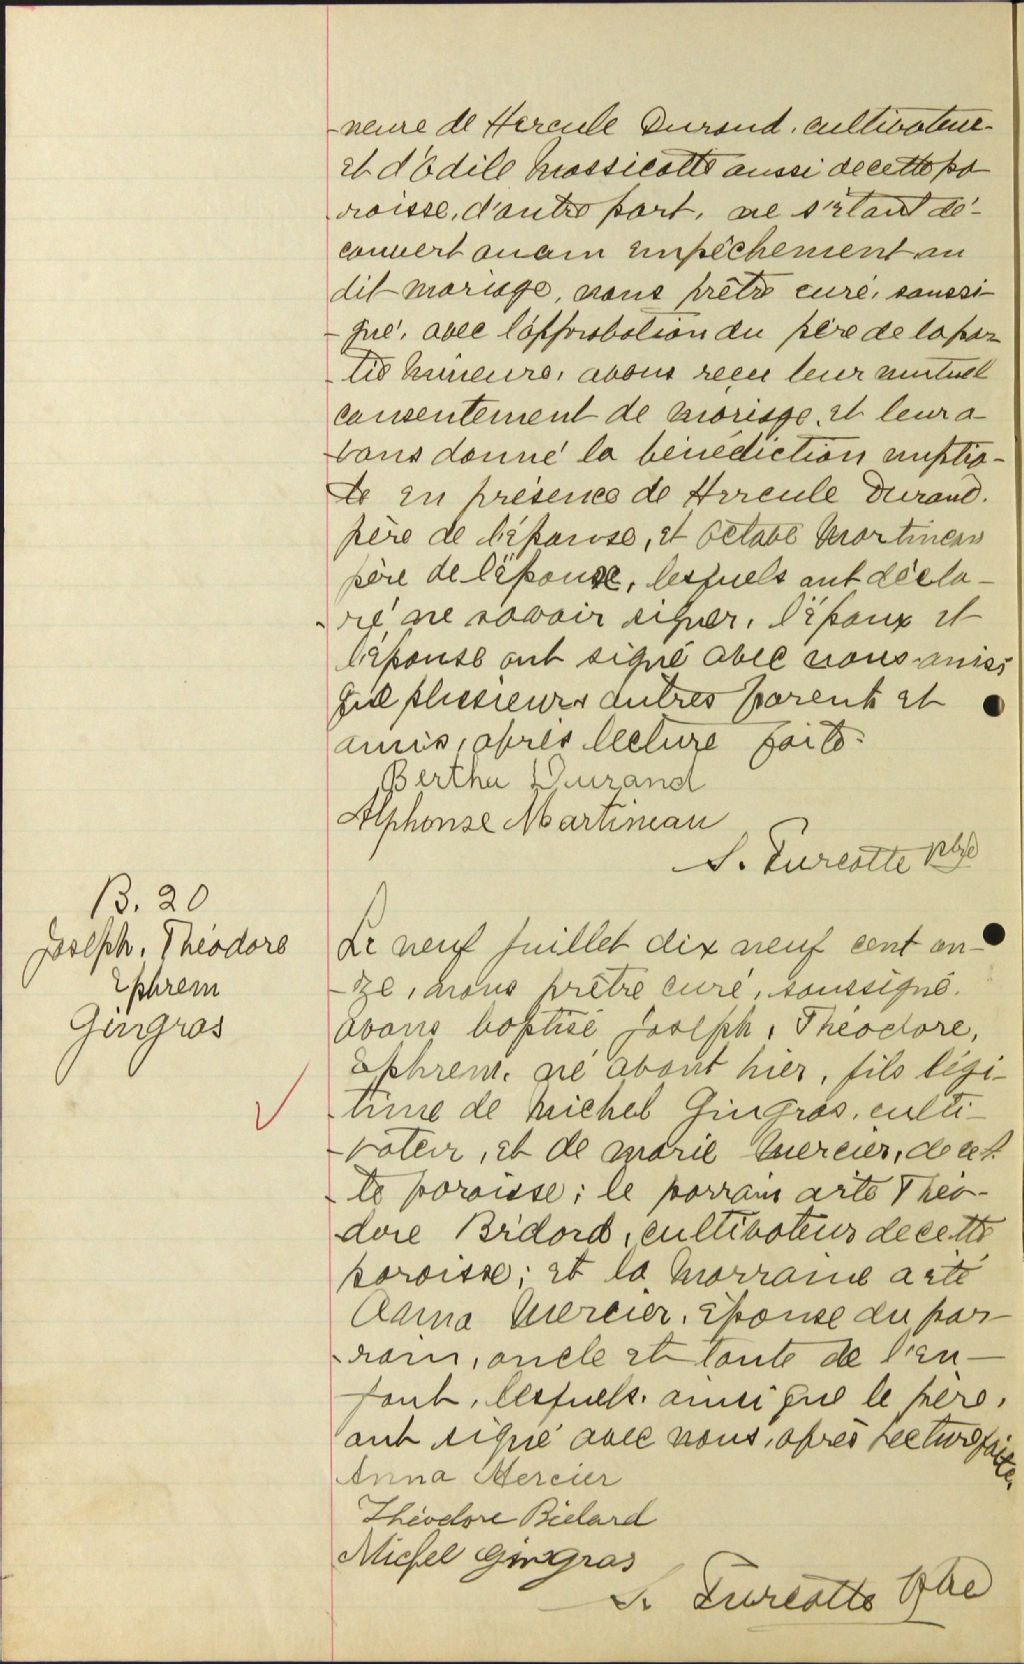 -neure de Hercule Durand, cultivateur
et d'Odile Massicotte aussi de cette pa
roisse, d'autre part, ne s'étant dé-
couvert aucun empêchement au
dit mariage, nous prêtre curé, soussi-
- gné, avec l'approbation du père de la par-
- tie mineure, avons reçu leur mutuel
consentement de mariage, et leur a-
vons donné la bénédiction nuptia-
le en présence de Hercule Durand.
père de l'épouse, et Octave Martineau
père de l'épouxe, lesquels ont décla-
- ré ne savoir signer, l'époux et
l'épouse ont signé avec nous ainsi
que plusieurs autres parents et
amis, après lecture faite.
Bertha Durand
Alphonse Martineau
S. Turcotte Ptre
B. 20
Joseph, Théodore
Ephrem
Gingras
Le neuf Juillet dix neuf cent on-
- ze, nous prêtre curé, soussigné.
avons baptisé Joseph, Théodore,
Ephrem, né avant hier, fils légi-
- time de Michel Gingras, culti-
- vateur, et de Marie Mercier, de cet-
- te paroisse; le parrain a été Théo-
dore Bédard, cultivateur de cette
paroisse; et la marraine a été
Anna Mercier, épouse du par-
- rain, oncle et tante de l'en-
fant, lesquels, ainsi que le père,
ont signé avec nous, après lecture faite.
Anna Mercier
Théodore Bédard
Michel Gingras
S. Turcotte Ptre